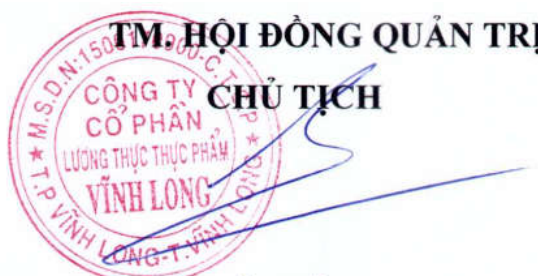 TM. HỘI ĐỒNG QUẢN TRỊ
CHỦ TỊCH
CÔNG TY
CỔ PHẦN
LƯƠNG THỰC THỰC PHẨM
VĨNH LONG
★ T.P VĨNH LONG-T.VĨNH LONG ★